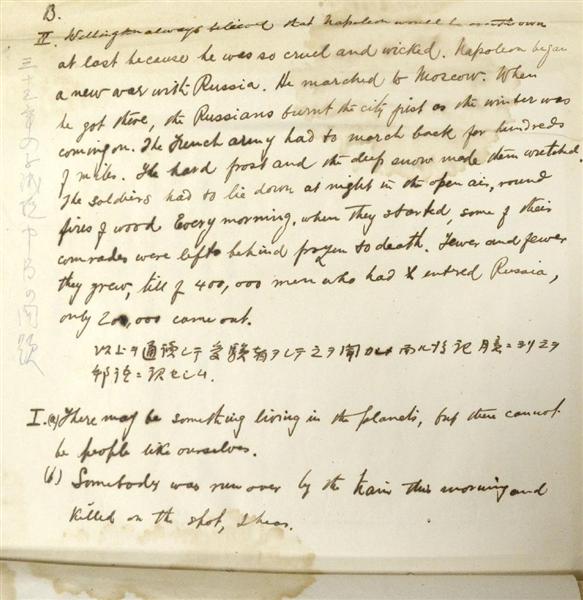 B.
II. Wellington always believed that Napoleon would be
at last because he was so cruel and wicked. Napoleon began
a new war with Russia. He marched to Moscow. When
he got there, the Russians burnt the city just as the winter was
coming on. The French army had to march back for hundreds
of miles. The hard frost and the deep snow made them wretched.
The soldiers had to lie down at night in the open air, round
fires of wood Every morning, when they started, some of their
comrades were left behind frozen to death. Fewer and fewer
they grew, till of 400,000 men who had entred Russia,
only 200,000 came out.
以上ヲ通読シテ受験者ヲシテ之ヲ聞カシメ
邦語ニ訳セシム.
I. (a) There may be something living in the planets, but there cannot
be people like ourselves.
(b) Somebody was run over by the train this morning and
killed on the spot, I hear.